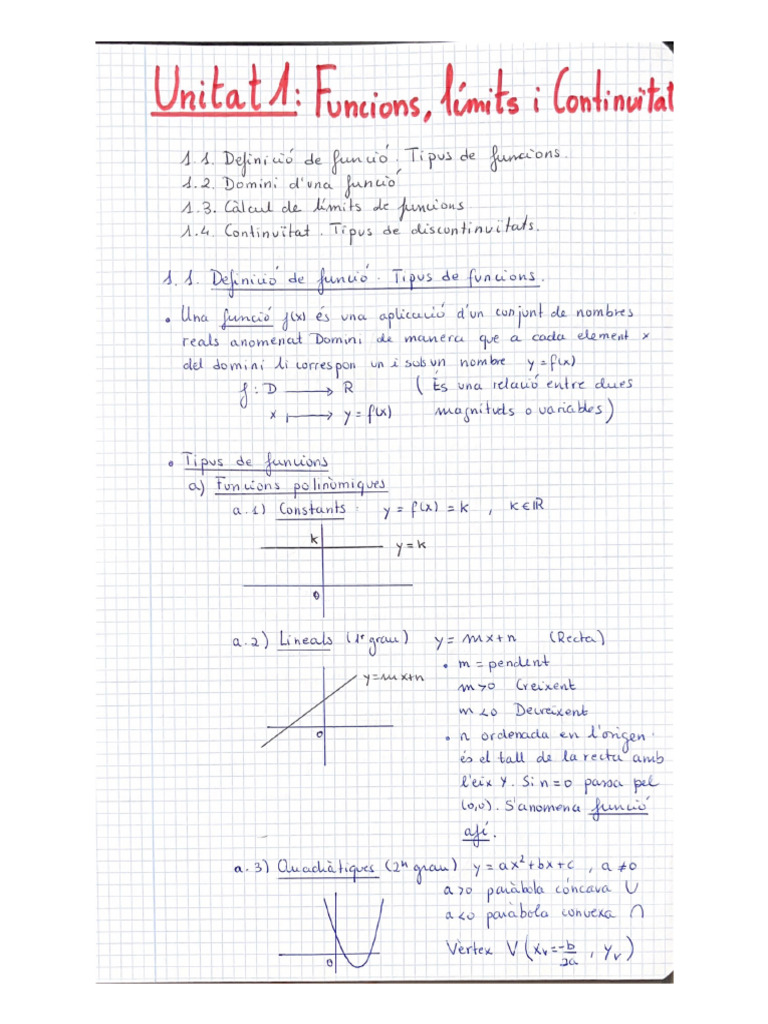 Unitat 1: Funcions, límits i Continuïtat
1.1. Definició de funció. Tipus de funcions.
1.2. Domini d'una funció
1.3. Càlcul de límits de funcions
1.4. Continuïtat. Tipus de discontinuïtats.
1.1. Definició de funció. Tipus de funcions.
• Una funció f(x) és una aplicació d'un conjunt de nombres
reals anomenat Domini de manera que a cada element x
del domini li correspon un i sols un nombre y = f(x)
f: D ⟶ R (És una relació entre dues
x ⟼ y = f(x) magnituds o variables)
• Tipus de funcions
a) Funcions polinòmiques
a.1) Constants: y = f(x) = k , k ∈ ℝ
k
y = k
0
a.2) Lineals (1er grau) y = mx+n (Recta)
y=mx+n
0
• m = pendent
m>0 Creixent
m<0 Decreixent
• n ordenada en l'origen:
és el tall de la recta amb
l'eix Y. Si n=0 passa pel
(0,0). S'anomena funció
afí.
a.3) Quadràtiques (2n grau) y = ax²+bx+c , a ≠0
a>0 paràbola còncava ∪
a<0 paràbola convexa ∩
0
Vèrtex V(xᵥ = -b/2a , yᵥ)